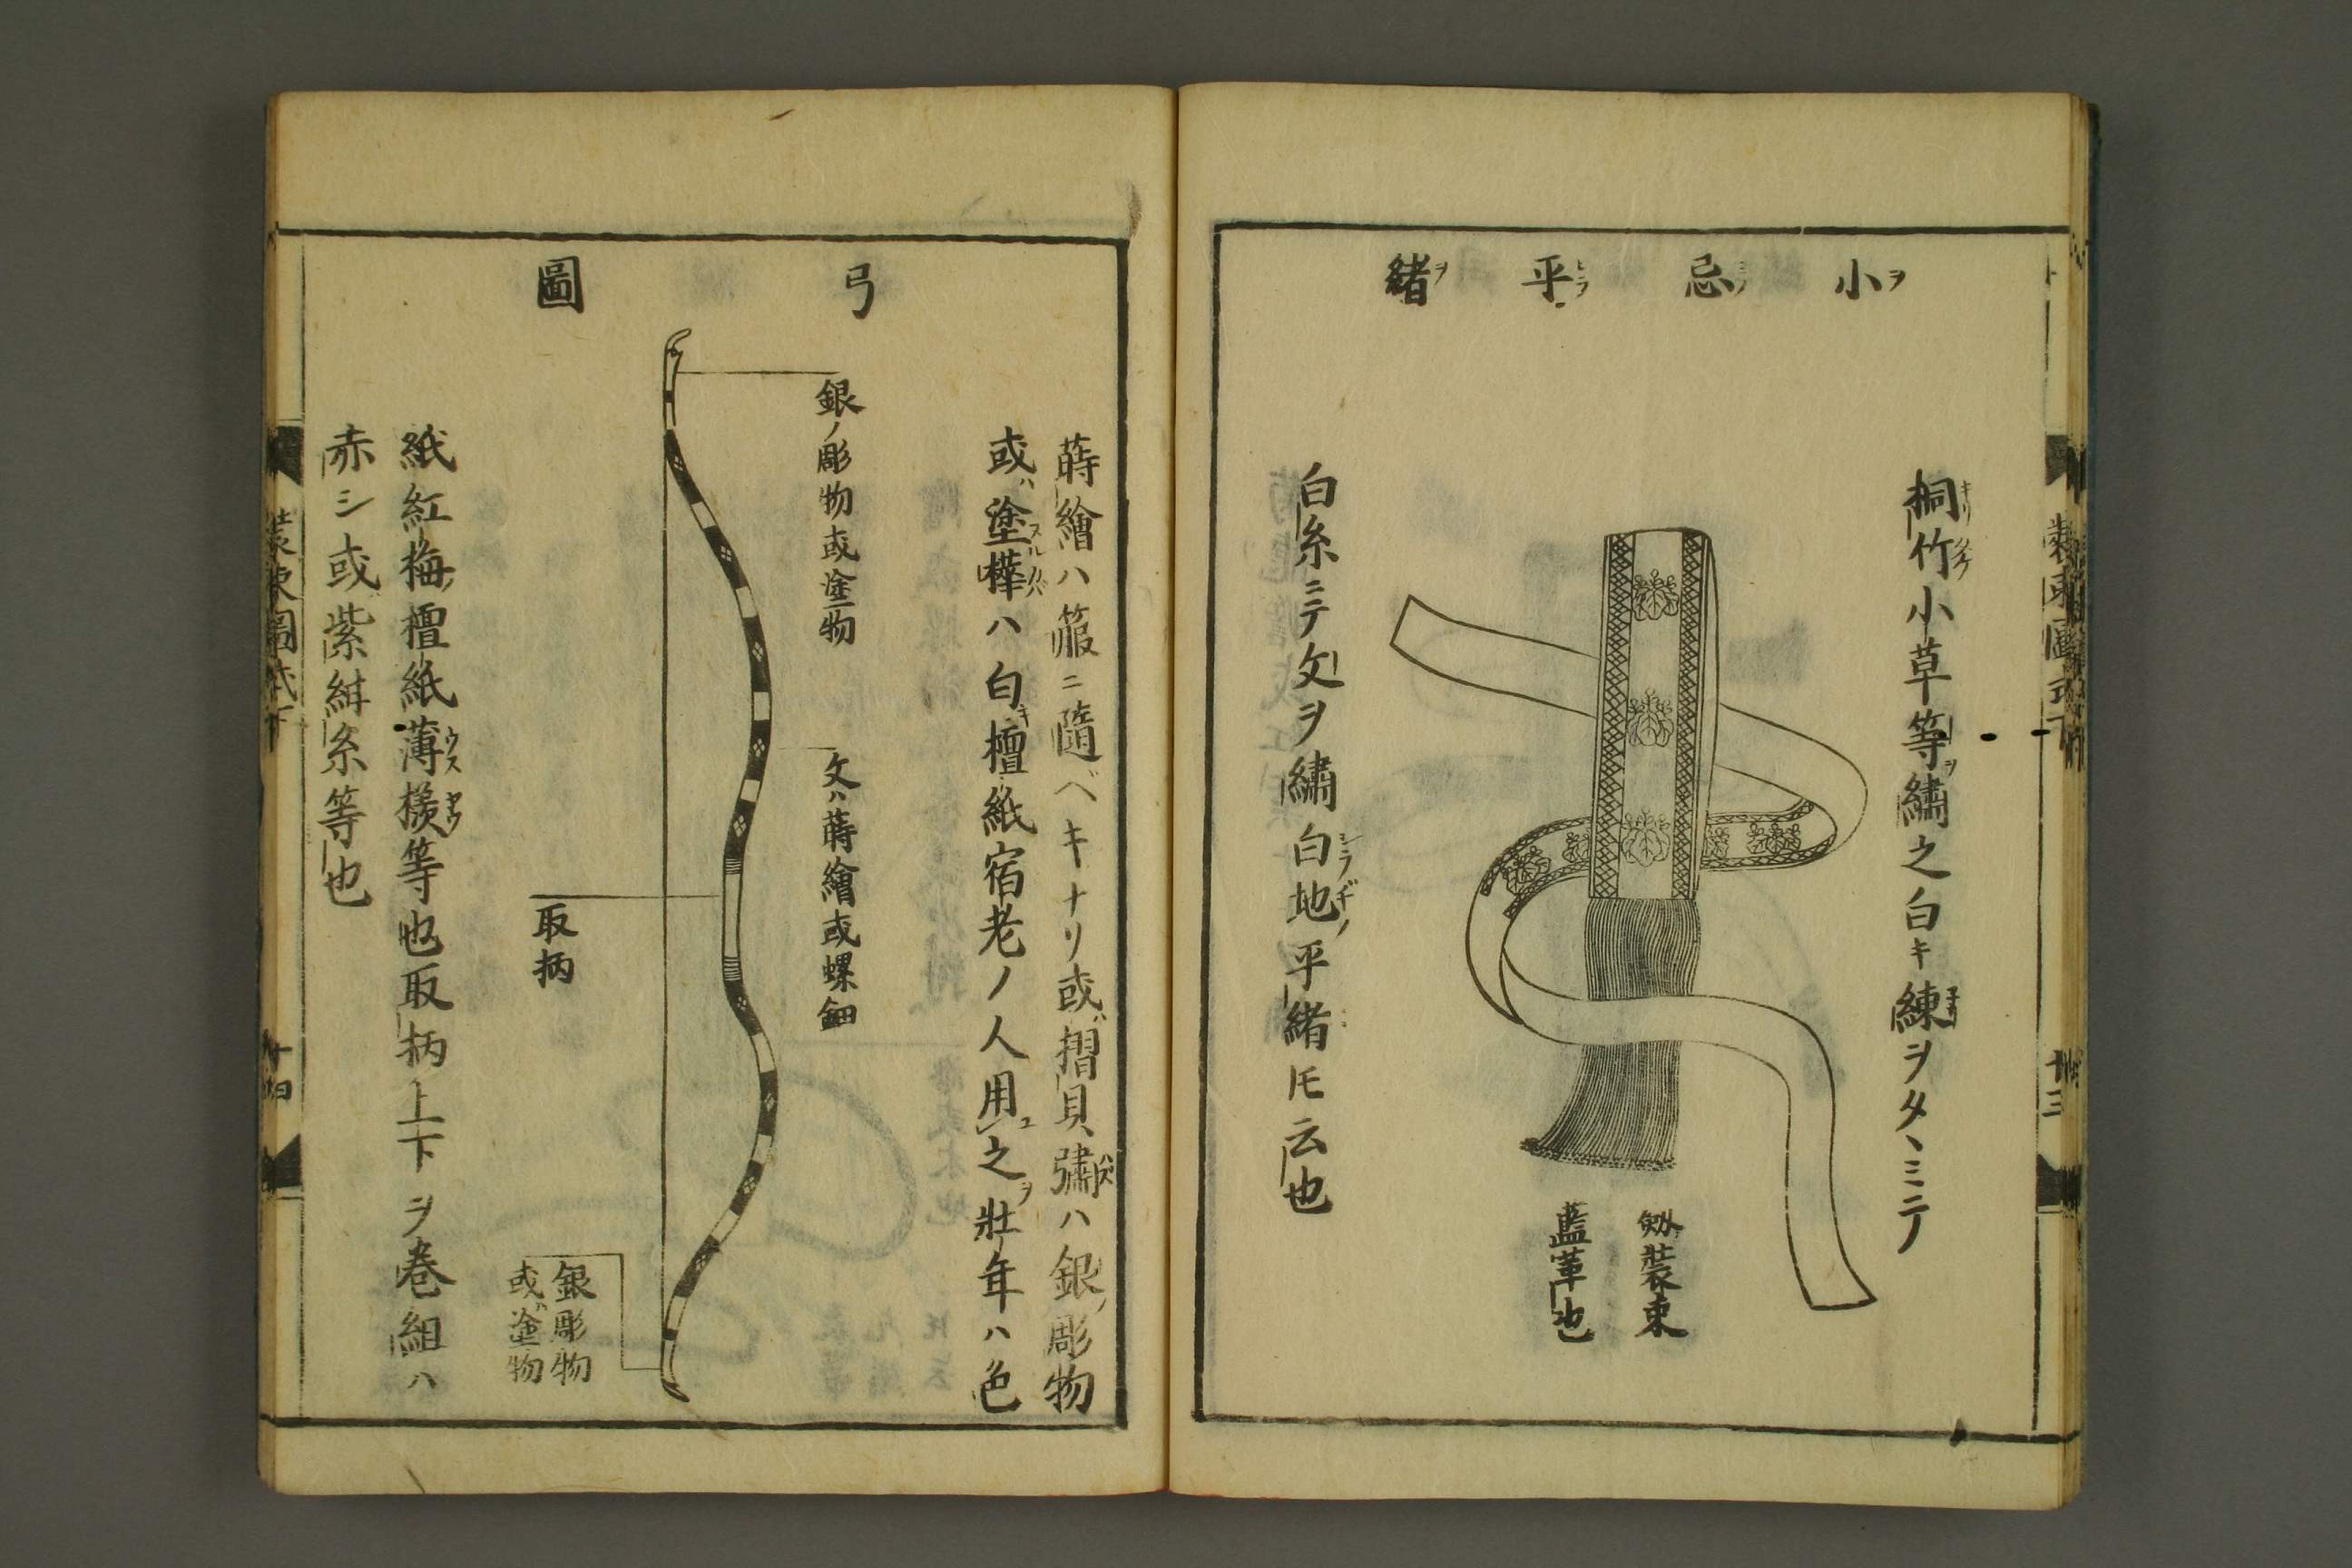 小忌平緒
桐竹小草等繡之白キ練ヲタヽミテ
剱装束
藍革也
白糸ニテ文ヲ繡白地平緒トモ云也
弓圖
蒔繪ハ箙ニ隨ベキナリ或ハ摺貝彇ハ銀ノ彫物
或ハ塗樺ハ白キ檀紙宿老ノ人用之壯年ハ色
銀ノ彫物或塗物
文ハ蒔繪或螺鈿
取柄
銀彫物
或ハ塗物
紙紅梅檀紙薄様等也取柄上下ヲ巻組ハ
赤シ或紫緂糸等也
装束圖式下
十四